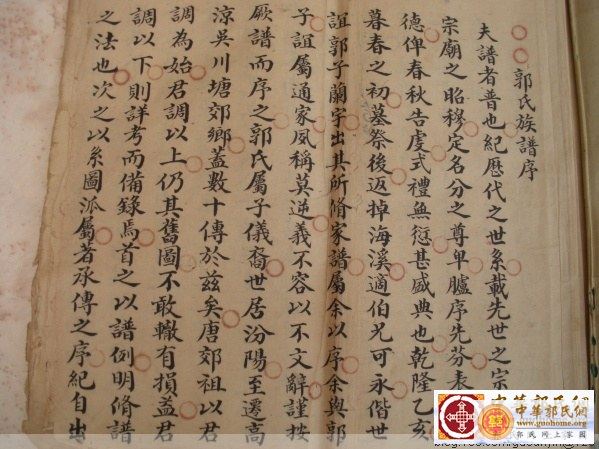 郭氏族譜序
夫譜者普也紀歷代之世系載先世之宗
宗廟之昭穆定名分之尊卑臚序先芬表
德俾春秋告虔式禮無愆甚盛典也乾隆乙亥
暮春之初墓祭後返掉海溪適伯兄可永偕世
誼郭子蘭宇出其所脩家譜屬余以序余與郭
子誼屬通家夙稱莫逆義不容以不文辭謹按
厥譜而序之郭氏屬子儀裔世居汾陽至遷高
涼吳川塘郊鄉蓋數十傳於茲矣唐郊祖以君
調為始君調以上仍其舊圖不敢轍有損益君
調以下則詳考而備錄焉首之以譜例明脩譜
之法也次之以系圖派屬著承傳之序紀自出
中華郭氏網
www.guohome.org
郭氏網上家園